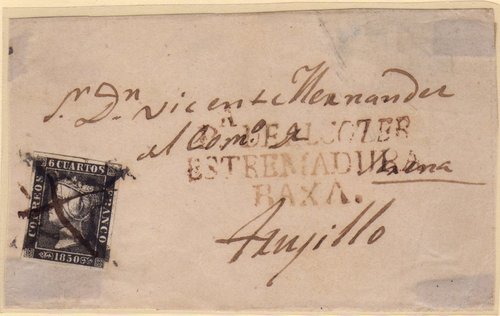 Sr. Dn. Vicente Hernandez
del Comº. de
R
DEALCOZER
ESTREMADURA
BAXA.
Trujillo
6 CUARTOS
CORREOS
FRANCO
1850